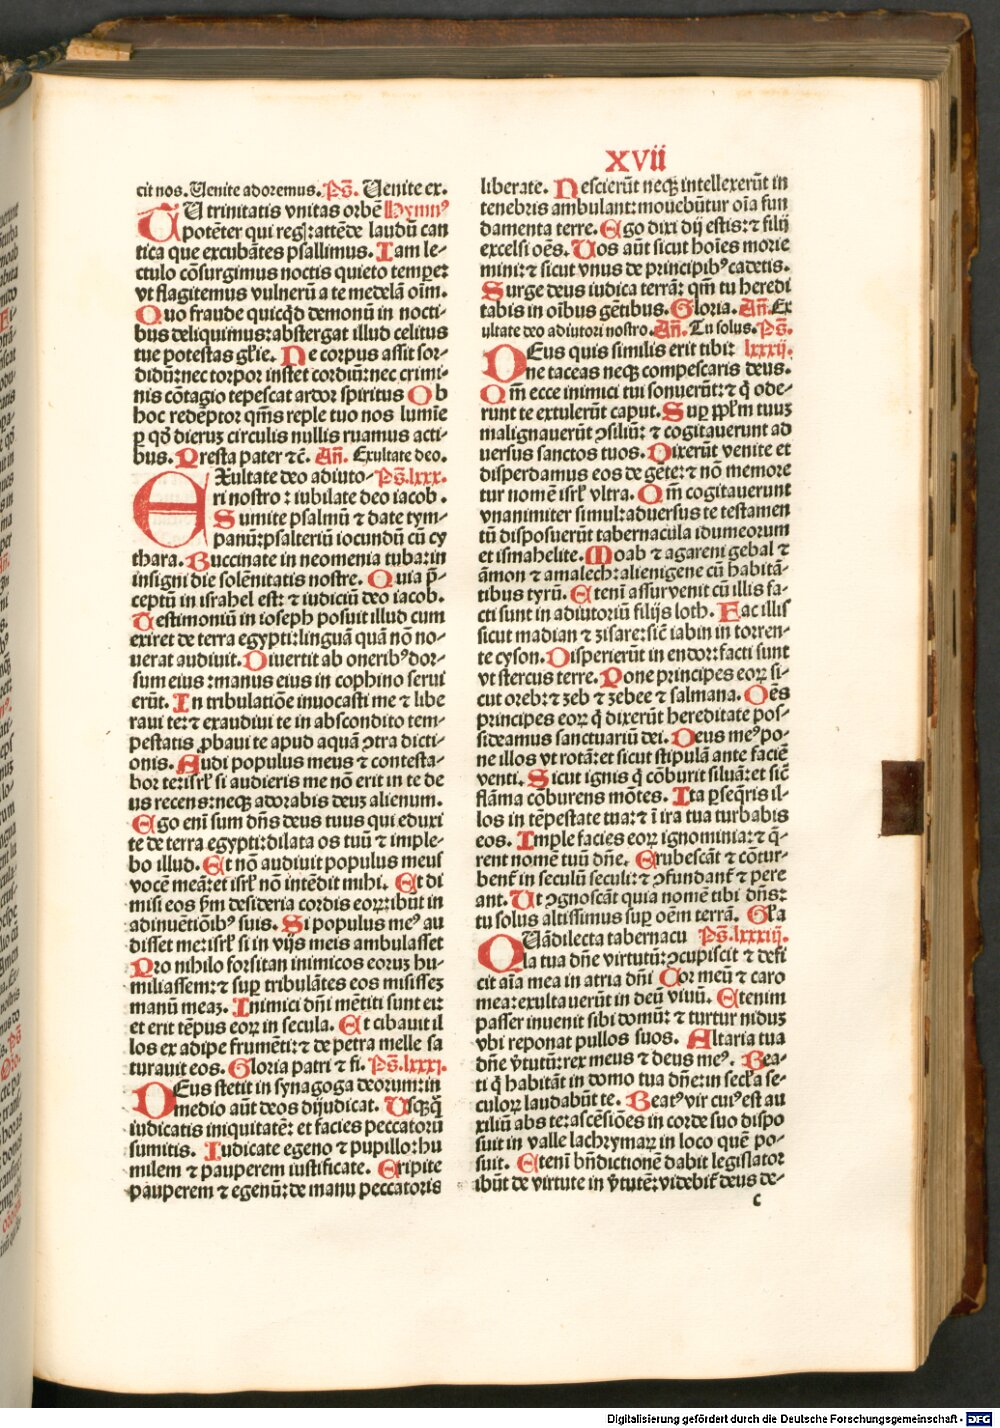 XVii
cit nos. Venite adoremus. Ps̄. Venite ex.
TU trinitatis vnitas orbē Hymnꝰ
potēter qui regꝭ: attēde laudū can
tica que excubātes psallimus. Iam le-
ctulo cōsurgimus noctis quieto tempe:
vt flagitemus vulnerū a te medelā oīm.
Quo fraude quicqd demonū in nocti-
bus deliquimus: abstergat illud celitus
tue potestas gl'ie. Ne corpus assit sor-
didū: nec torpor instet cordiū: nec crimi-
nis cōtagio tepescat ardor spiritus Ob
hoc redēptor qm̄s reple tuo nos lumīe
ꝑ qd̄ dieruꝫ circulis nullis ruamus acti-
bus. Presta pater ⁊c̄. Añ. Exultate deo.
EXultate deo adiuto- Ps̄. lxxx.
ri nostro: iubilate deo iacob.
Sumite psalmū ⁊ date tym-
panū: psalteriū iocundū cū cy
thara. Buccinate in neomenia tuba: in
insigni die solēnitatis nostre. Quia p̄-
ceptū in israhel est: ⁊ iudiciū deo iacob.
Testimoniū in ioseph posuit illud cum
exiret de terra egypti: linguā quā nō no-
uerat audiuit. Diuertit ab oneribꝰ dor-
sum eius: manus eius in cophino serui
erūt. In tribulatiōe inuocasti me ⁊ libe
raui te: ⁊ exaudiui te in abscondito tem-
pestatis ꝓbaui te apud aquā ↄtra dicti-
onis. Audi populus meus ⁊ contesta-
bor te: isrl' si audieris me nō erit in te de
us recens: neqꝫ adorabis deuꝫ alienum.
Ego eni sum dn̄s deus tuus qui eduxi
te de terra egypti: dilata os tuū ⁊ imple-
bo illud. Et nō audiuit populus meus
vocē meā: et isrl' nō intēdit mihi. Et di
misi eos ẜm desideria cordis eoꝝ: ibūt in
adinuētiōibꝰ suis. Si populus meꝰ au
disset me: isrl' si in vijs meis ambulasset
Pro nihilo forsitan inimicos eoruꝫ hu-
miliassem: ⁊ suꝑ tribulātes eos misisseꝫ
manū meaꝫ. Inimici dn̄i mētiti sunt ei:
et erit tēpus eoꝝ in secula. Et cibauit il
los ex adipe frumēti: ⁊ de petra melle sa
turauit eos. Gloria patri ⁊ fi. Ps̄. lxxxj.
DEus stetit in synagoga deorum: in
medio aūt deos dijudicat. Usq̄ꝫ
iudicatis iniquitatē: et facies peccatorū
sumitis. Iudicate egeno ⁊ pupillo: hu
milem ⁊ pauperem iustificate. Eripite
pauperem ⁊ egenū: de manu peccatoris
liberate. Nescierūt neqꝫ intellexerūt in
tenebris ambulant: mouebūtur oīa fun
damenta terre. Ego dixi dij estis: ⁊ filij
excelsi oēs. Vos aūt sicut hoīes morie
mini: ⁊ sicut vnus de principibꝰ cadetis.
Surge deus iudica terrā: qm̄ tu heredi
tabis in oībus gētibus. Gloria. Añ. Ex
ultate deo adiutori nostro. Añ. Tu solus. Ps̄.
DEus quis similis erit tibi: lxxxij.
ne taceas neqꝫ compescaris deus.
Qm̄ ecce inimici tui sonuerūt: ⁊ q̄ ode-
runt te extulerūt caput. Suꝑ pp̄lm tuuꝫ
malignauerūt ↄsiliū: ⁊ cogitauerunt ad
uersus sanctos tuos. Dixerūt venite et
disperdamus eos de gēte: ⁊ nō memore
tur nomē isrl' vltra. Qm̄ cogitauerunt
vnanimiter simul: aduersus te testamen
tū disposuerūt tabernacula idumeorum
et ismahelite. Moab ⁊ agareni gebal ⁊
āmon ⁊ amalech: alienigene cū habitā-
tibus tyrū. Etenī assur venit cū illis fa-
cti sunt in adiutoriū filijs loth. Fac illis
sicut madian ⁊ zisare: sic̄ iabin in torren-
te cyson. Disperierūt in endor: facti sunt
vt stercus terre. Pone principes eoꝝ si-
cut oreb: ⁊ zeb ⁊ zebee ⁊ salmana. Oēs
principes eoꝝ q̄ dixerūt hereditate pos-
sideamus sanctuariū dei. Deus meꝰ po-
ne illos vt rotā: et sicut stipulā ante faciē
venti. Sicut ignis q̄ cōburit siluā: et sic̄
flāma cōburens mōtes. Ita ꝑseq̄ris il-
los in tēpestate tua: ⁊ ī ira tua turbabis
eos. Imple facies eoꝝ ignominia: ⁊ q̄-
rent nomē tuū dn̄e. Erubescāt ⁊ cōtur-
bent̄ in seculū seculi: ⁊ ↄfundant̄ ⁊ pere
ant. Ut ↄgnoscāt quia nomē tibi dn̄s:
tu solus altissimus suꝑ oēm terrā. Gl'a
QUādilecta tabernacu Ps̄. lxxxiij.
la tua dn̄e virtutū: ↄcupiscit ⁊ defi
cit aīa mea in atria dn̄i Cor meū ⁊ caro
mea: exultauerūt in deū viuū. Etenim
passer inuenit sibi domū: ⁊ turtur niduꝫ
vbi reponat pullos suos. Altaria tua
dn̄e v̄tutū: rex meus ⁊ deus meꝰ. Bea-
ti q̄ habitāt in domo tua dn̄e: in secl'a se-
culoꝝ laudabūt te. Beatꝰ vir cuiꝰ est au
xiliū abs te: ascēsiōes in corde suo dispo
suit in valle lachrymaꝝ in loco quē po-
suit. Etenī bn̄dictionē dabit legislator
ibūt de virtute in v̄tutē: videbit̄ deus de-
c
Digitalisierung gefördert durch die Deutsche Forschungsgemeinschaft - DFG